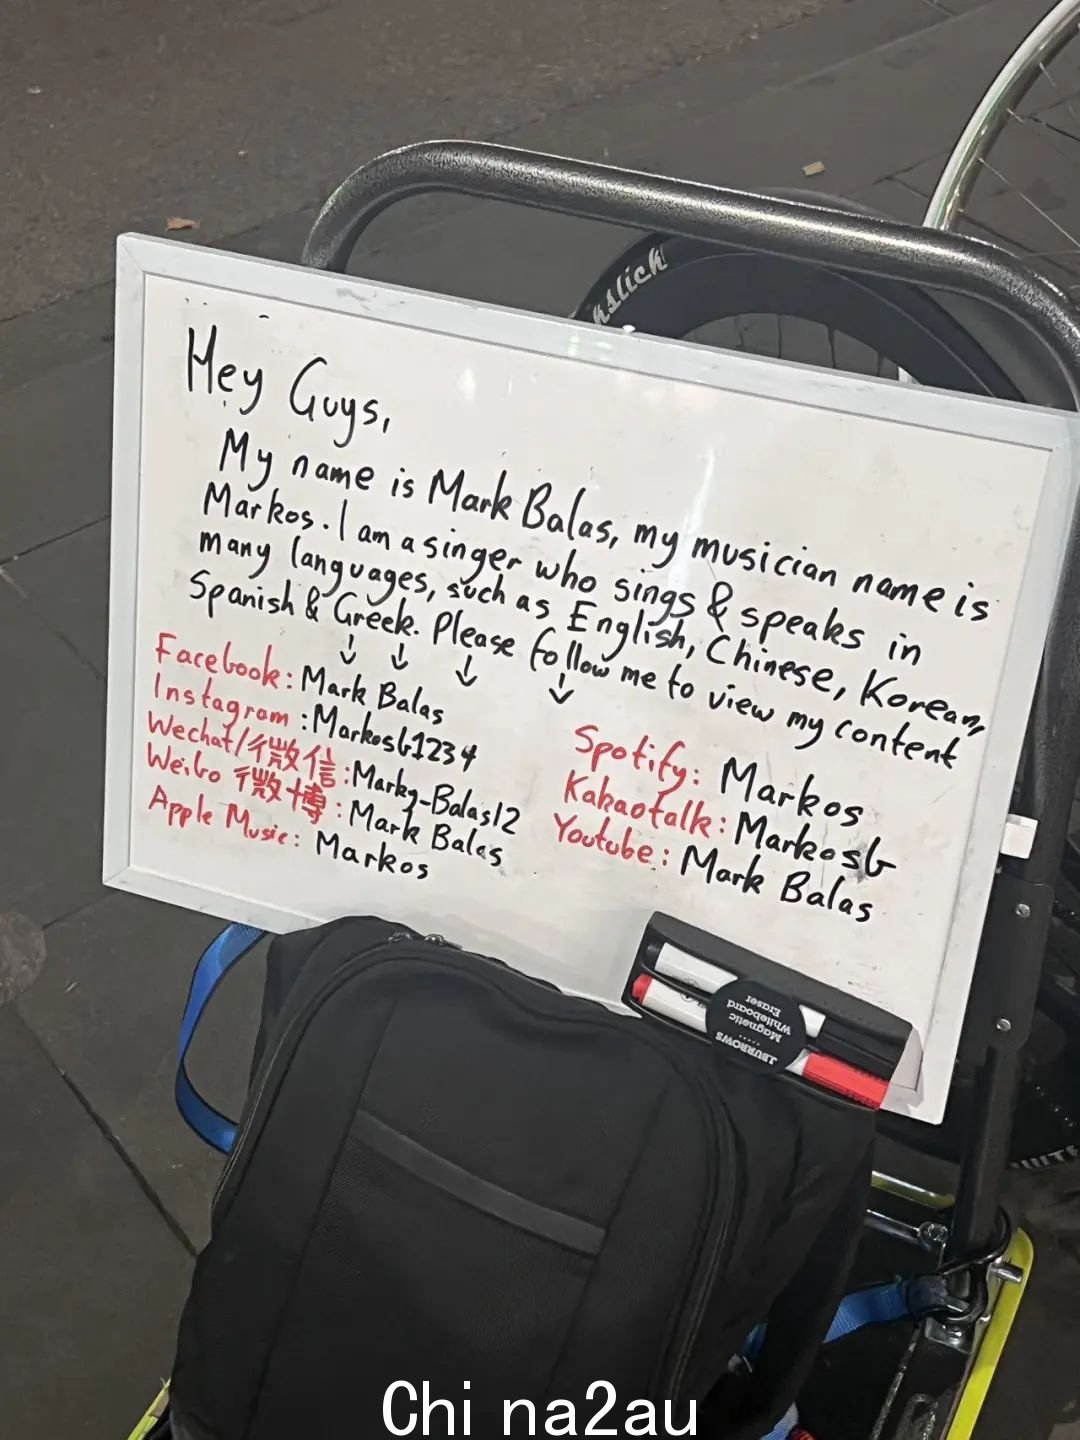 Hey Guys,
My name is Mark Balas, my musician name is
Markos. I am a singer who sings & speaks in
many languages, such as English, Chinese, Korean,
Spanish & Greek. Please follow me to view my content
Facebook: Mark Balas
Instagram: Markosb1234
Wechat/微信: Marky-Balas12
Weibo 微博: Mark Balas
Apple Music: Markos
Spotify: Markos
Kakaotalk: Markosb
Youtube: Mark Balas
J.BURROWS
Magnetic
Whiteboard
Eraser
China2au